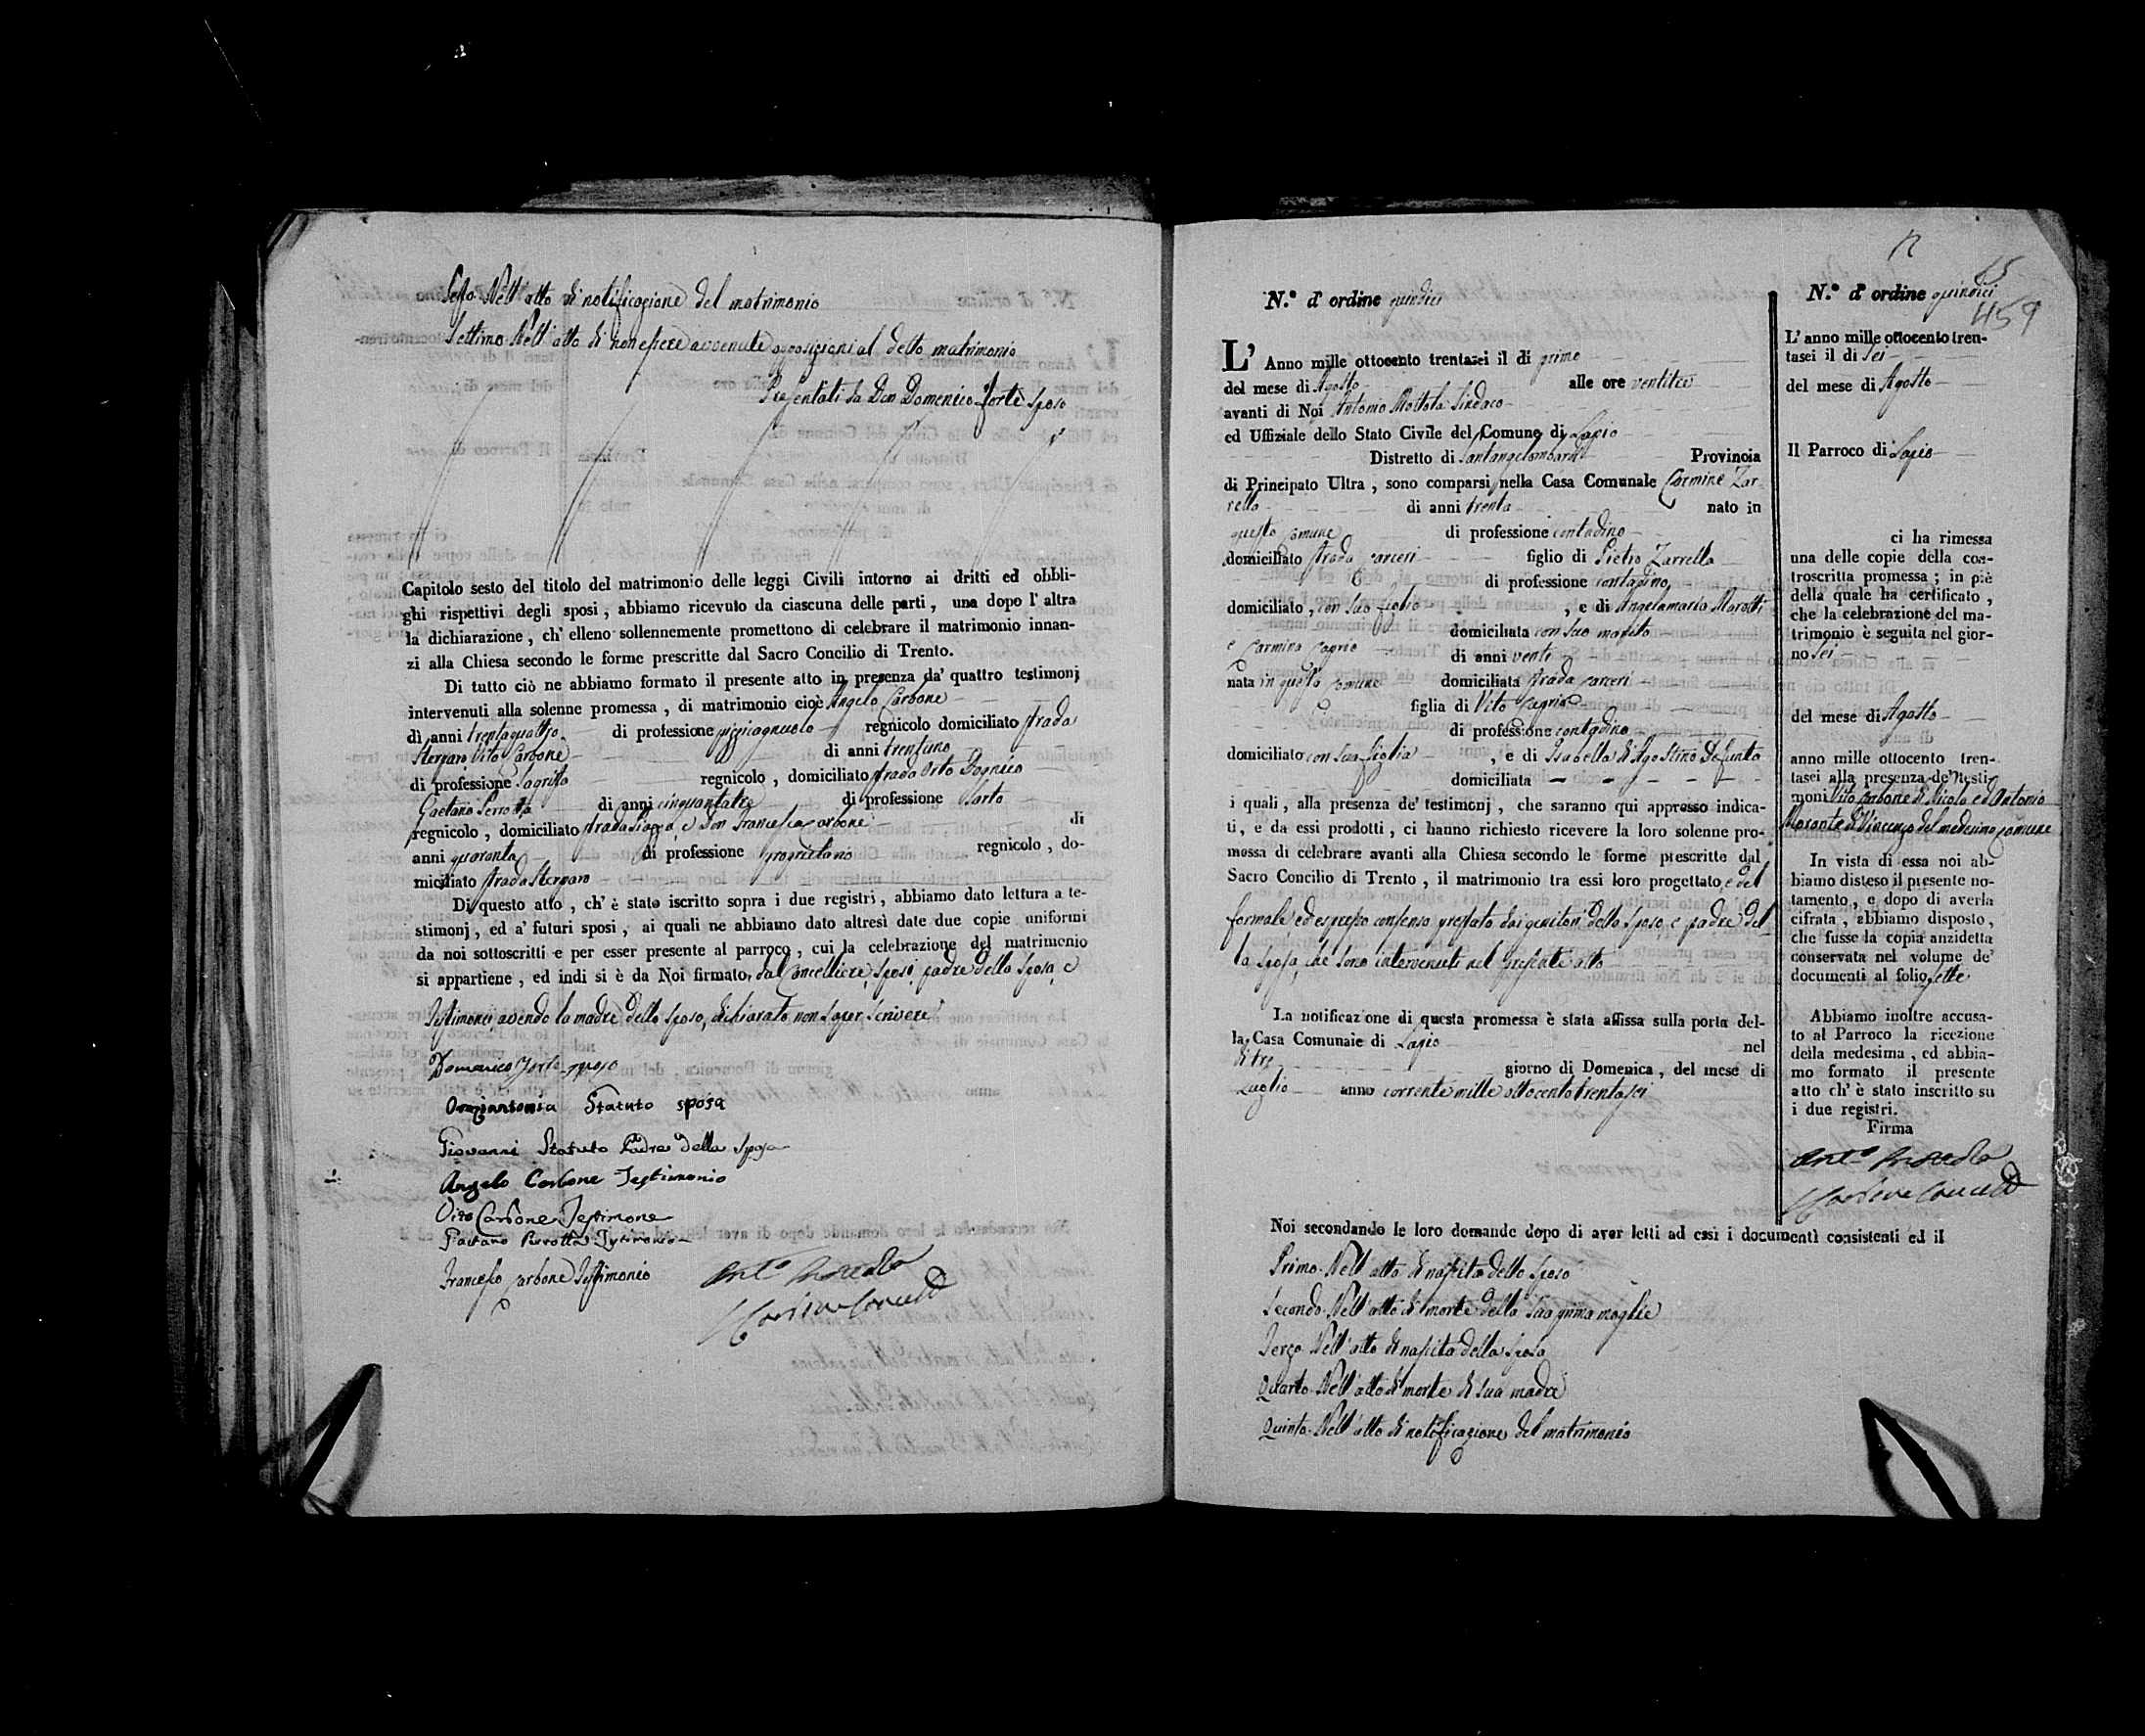 Sesto Nell'atto di notificazione del matrimonio
Settimo Nell'atto di non essere avvenute opposizioni al detto matrimonio
Presentati da Don Domenico Forte sposo
Capitolo sesto del titolo del matrimonio delle leggi Civili intorno ai dritti ed obbli-
ghi rispettivi degli sposi, abbiamo ricevuto da ciascuna delle parti, una dopo l'altra
la dichiarazione, ch'elleno sollennemente promettono di celebrare il matrimonio innan-
zi alla Chiesa secondo le forme prescritte dal Sacro Concilio di Trento.
Di tutto ciò ne abbiamo formato il presente atto in presenza da' quattro testimonj
intervenuti alla solenne promessa, di matrimonio cioè Angelo Carbone
di anni trentaquattro di professione pizzicagnuolo regnicolo domiciliato strada
Vito Carbone di anni trentuno
di professione regnicolo, domiciliato strada Orto
Gaetano Perrotta di anni cinquantatre di professione Sarto
regnicolo, domiciliato strada Piazza, e Don Francesco Carbone di
anni quaranta di professione proprietario regnicolo, do-
miciliato strada
Di questo atto, ch'è stato iscritto sopra i due registri, abbiamo dato lettura a te-
stimonj, ed a' futuri sposi, ai quali ne abbiamo dato altresì date due copie uniformi
da noi sottoscritti e per esser presente al parroco, cui la celebrazione del matrimonio
si appartiene, ed indi si è da Noi firmato, dal Cancelliere, sposi, padre della sposa, e
testimonj, avendo la madre dello sposo, dichiarato non saper scrivere
Domenico Forte sposo
Statuto sposa
Giovanni Statuto Padre della sposa
Angelo Carbone Testimonio
Vito Carbone Testimone
Gaetano Perrotta Testimonio
Francesco Carbone Testimonio
N.º d'ordine quindici
L'Anno mille ottocento trentasei il dì primo
del mese di Agosto alle ore ventitre
avanti di Noi Antonio Mottola Sindaco
ed Uffiziale dello Stato Civile del Comune di Lapio
Distretto di Santangelombardi Provincia
di Principato Ultra, sono comparsi nella Casa Comunale Carmine Zar
rella di anni trenta nato in
questo comune di professione contadino
domiciliato strada carceri figlio di Pietro Zarrella
di professione contadino
domiciliato, con suo figlio, e di Angelamaria Marotti
domiciliata con suo marito
e Carmina Caprio di anni venti
nata in questo comune domiciliata strada carceri
figlia di Vito Caprio
di professione contadino
domiciliato con sua figlia, e di Isabella di Agostino Defunta
domiciliata
i quali, alla presenza de' testimonj, che saranno qui appresso indica-
ti, e da essi prodotti, ci hanno richiesto ricevere la loro solenne pro-
messa di celebrare avanti alla Chiesa secondo le forme prescritte dal
Sacro Concilio di Trento, il matrimonio tra essi loro progettato, e del
formale ed espresso consenso prestato dai genitori dello sposo, e padre del
la sposa, che sono intervenuti nel presente atto
La notificazione di questa promessa è stata affissa sulla porta del-
la Casa Comunale di Lapio nel
di tre giorno di Domenica, del mese di
Luglio anno corrente mille ottocento trentasei
N.º d'ordine quindici
459
L'anno mille ottocento tren-
tasei il dì sei
del mese di Agosto
Il Parroco di Lapio
ci ha rimessa
una delle copie della con-
troscritta promessa; in piè
della quale ha certificato,
che la celebrazione del ma-
trimonio è seguita nel gior-
no sei
del mese di Agosto
anno mille ottocento tren-
tasei alla presenza de' testi-
moni Vito Carbone di Nicola ed Antonio
Morante di Vincenzo del medesimo comune
In vista di essa noi ab-
biamo disteso il presente no-
tamento, e dopo di averla
cifrata, abbiamo disposto,
che fusse la copia anzidetta
conservata nel volume de'
documenti al folio sette
Abbiamo inoltre accusa-
to al Parroco la ricezione
della medesima, ed abbia-
mo formato il presente
atto ch'è stato inscritto su
i due registri.
Firma
Noi secondando le loro domande dopo di aver letti ad essi i documenti consistenti ed il
Primo Nell'atto di nascita dello sposo
Secondo Nell'atto di morte della sua prima moglie
Terzo Nell'atto di nascita della sposa
Quarto Nell'atto di morte di sua madre
Quinto Nell'atto di notificazione del matrimonio